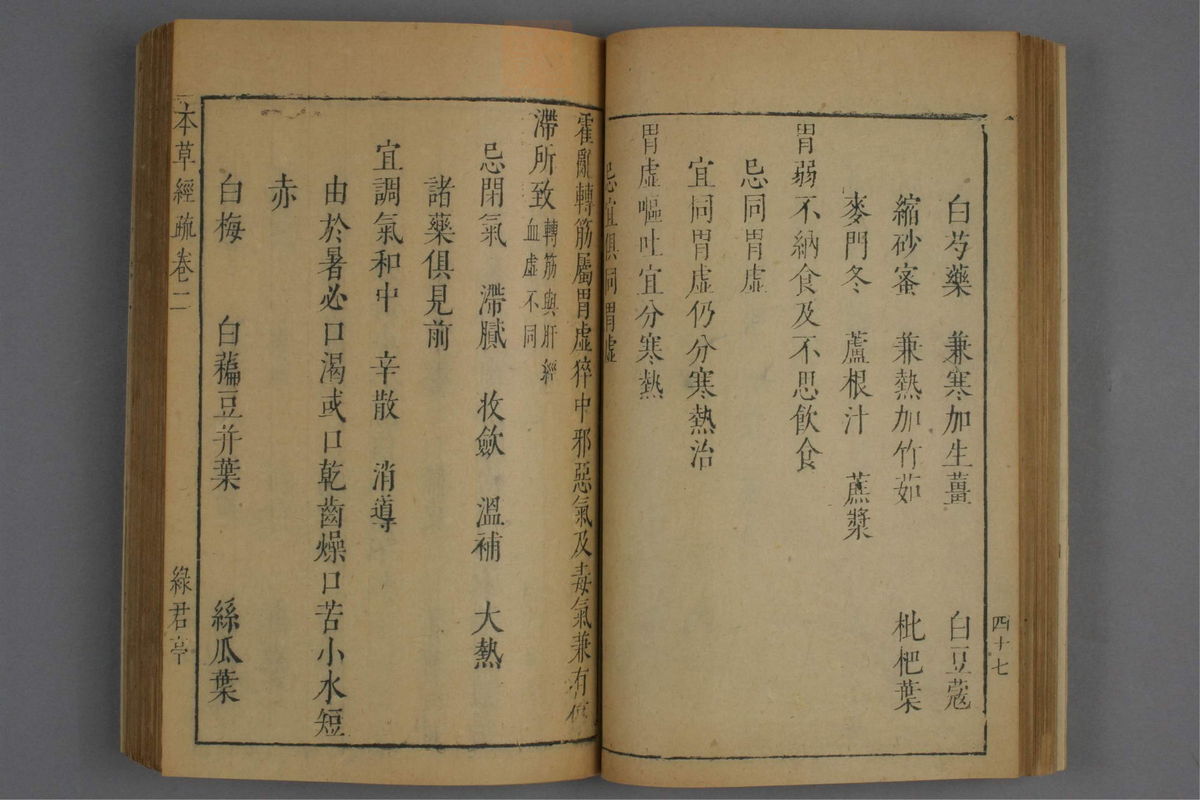 四十七
白芍藥 兼寒加生薑 白豆蔻
縮砂蜜 兼熱加竹茹 枇杷葉
麥門冬 蘆根汁 蔗漿
胃弱不納食及不思飲食
忌同胃虛
宜同胃虛仍分寒熱治
胃虛嘔吐宜分寒熱
忌宜俱同胃虛
霍亂轉筋屬胃虛猝中邪惡氣及毒氣兼有停
滯所致轉筋與肝經血虛不同
忌閉氣 滯膩 收斂 溫補 大熱
諸藥俱見前
宜調氣和中 辛散 消導
由於暑必口渴或口乾齒燥口苦小水短
赤
白梅 白藊豆并葉 絲瓜葉
本草經疏卷二 綠君亭